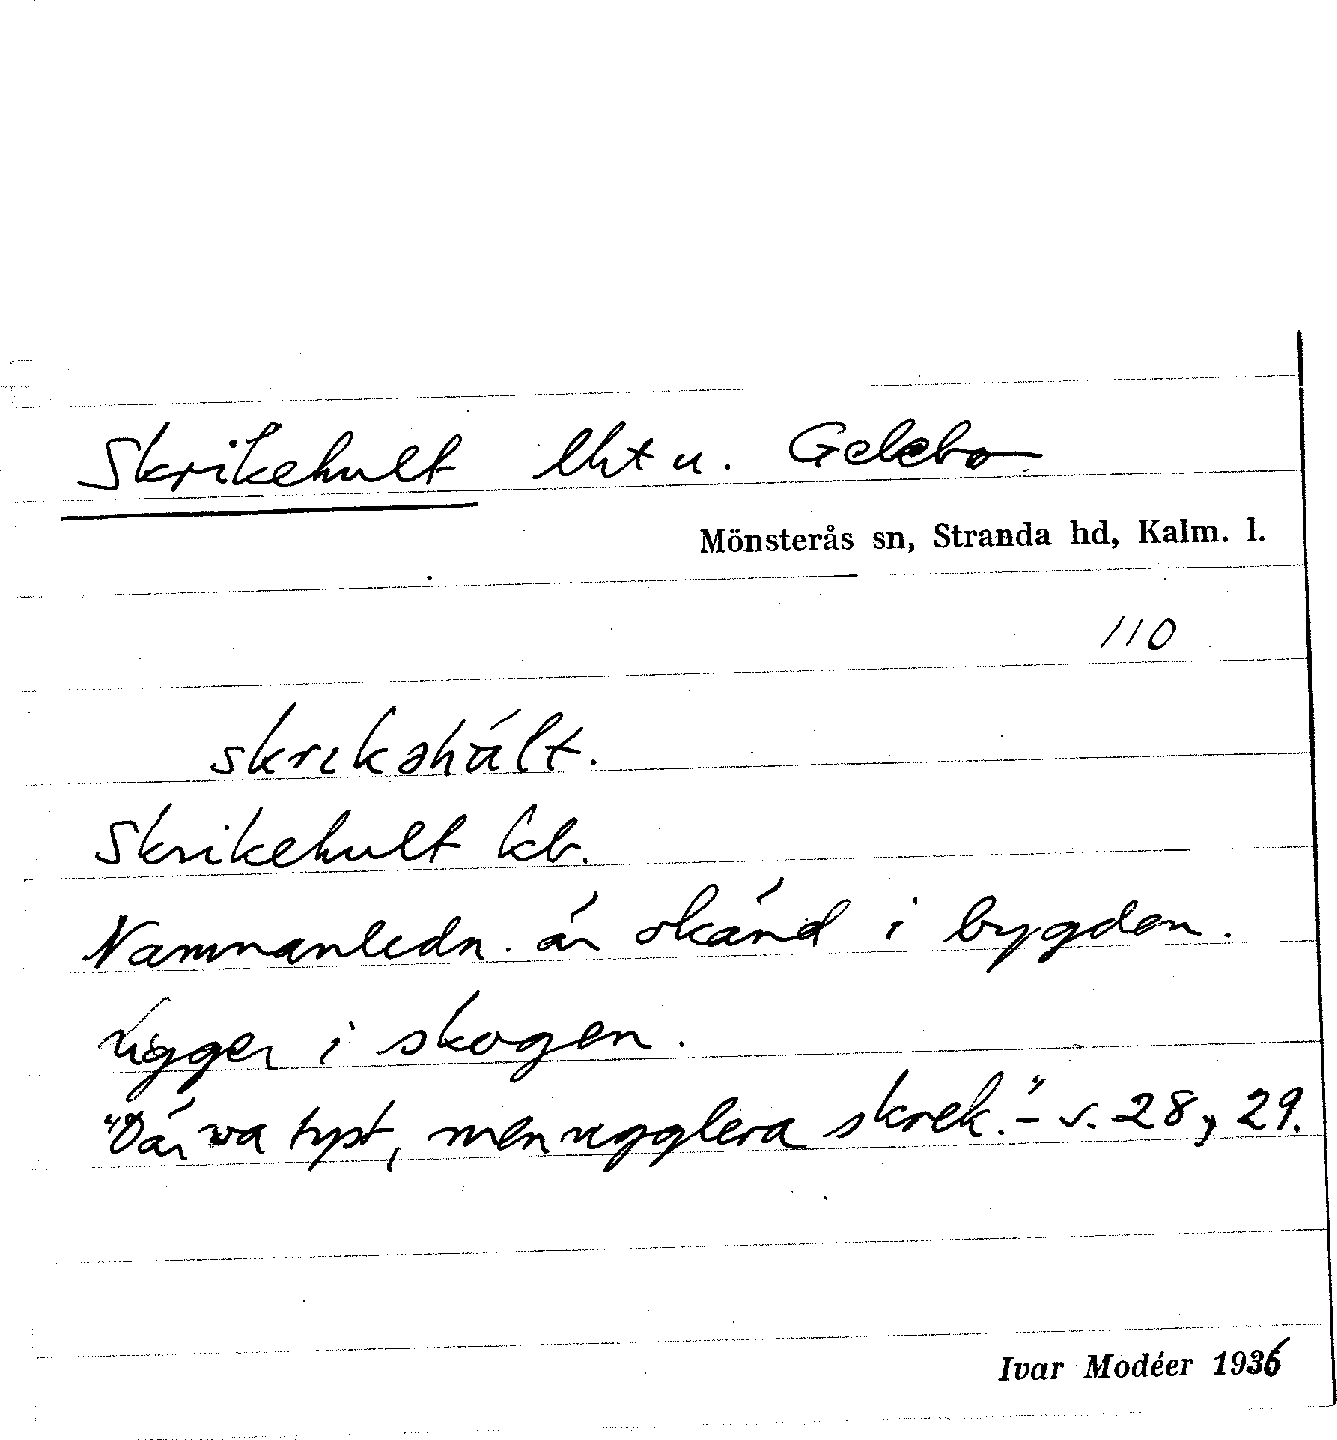 Skrikehult lht u. Gelebo
Mönsterås sn, Stranda hd, Kalm. l.
110
skrikəhult.
Skrikehult kb.
Namnanledn. är okänd i bygden.
Ligger i skogen.
"Där va tyst, men ugglera skrek." - s. 28, 29.
Ivar Modéer 1936